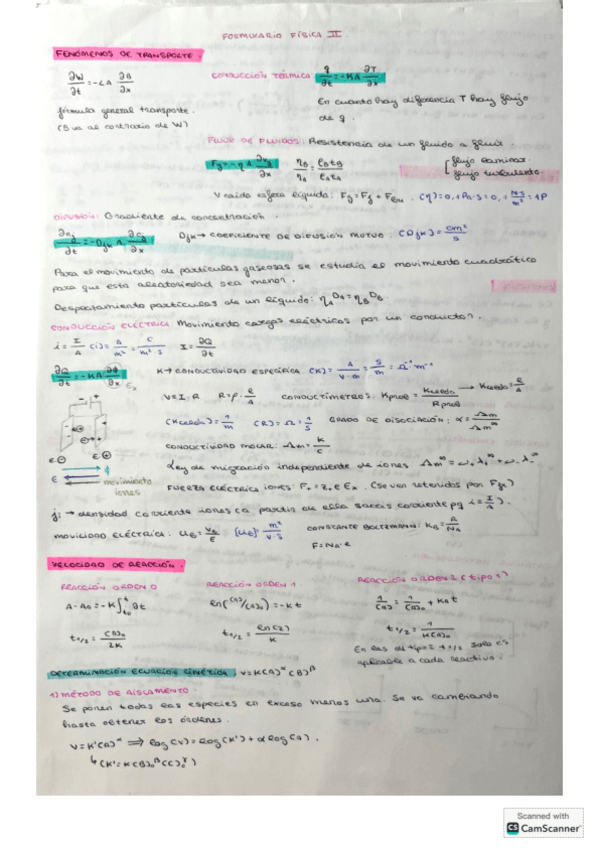 FORMULARIO FÍSICA II
FENÓMENOS DE TRANSPORTE.
∂W/∂t = -LA ∂B/∂x
CONDUCCIÓN TÉRMICA q/∂t = -KA ∂T/∂x
fórmula general transporte.
(B va al contrario de W)
En cuanto hay diferencia T hay flujo de q.
FLUJO DE FLUIDOS: Resistencia de un fluido a fluir.
ηB/ηA = ρB tB/ρA tA
flujo laminar.
flujo turbulento.
DIFUSIÓN: Gradiente de concentración.
Djk → COEFICIENTE DE DIFUSIÓN MUTUO. (Djk) = cm²/s
Para el movimiento de partículas gaseosas se estudia el movimiento cuadrático
para que esta aleatoriedad sea menor.
Desplazamiento partículas de un líquido: ηA DA = ηB DB
CONDUCCIÓN ELÉCTRICA Movimiento cargas eléctricas por un conductor.
i = I/A (i) = A/m² = C/m²·s I = ∂Q/∂t
∂Q/∂t = -KA ∂Φ/∂x Ex
K → CONDUCTIVIDAD ESPECÍFICA (K) = A/V·m = S/m = Ω⁻¹·m⁻¹
V = I·R R = ρ·ℓ/A CONDUCTÍMETROS: Kprob = Kcelda/Rprob → Kcelda = ℓ/A
(Kcelda) = 1/m GRADO DE DISOCIACIÓN: α = Λm/Λm∞
CONDUCTIVIDAD MOLAR: Λm = K/C
Ley de migración independiente de iones Λm∞ = ν₊λ₊∞ + ν₋λ₋∞
movimiento
iones
(Se ven retenidos por Fyz)
ji → densidad corriente iones (a partir de ella sacas corriente pq i = I/A).
MOVILIDAD ELÉCTRICA: [UE] = m²/V·s CONSTANTE BOLTZMANN: KB = R/NA
F = NA·e
VELOCIDAD DE REACCIÓN.
REACCIÓN ORDEN 0 REACCIÓN ORDEN 1 REACCIÓN ORDEN 2 (tipo 1)
ln((A)/(A)₀) = -kt
1/(A) = 1/(A)₀ + KA t
t₁/₂ = (A)₀/2K
t₁/₂ = ln(2)/K
t₁/₂ = 1/K(A)₀
En las de tipo 2 t₁/₂ solo es
aplicable a cada reactivo.
DETERMINACIÓN ECUACIÓN CINÉTICA: v = K(A)^α (B)^β
1) MÉTODO DE AISLAMIENTO.
Se ponen todas las especies en exceso menos una. Se va cambiando
hasta obtener los órdenes.
v = K'(A)^α ⟹ log(v) = log(K') + α log(A).
↳ (K' = K(B)₀^β (C)₀^γ)
Scanned with
CS CamScanner